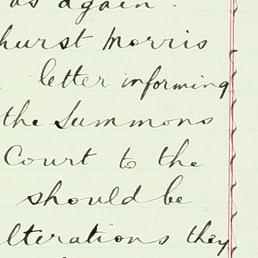 as again.
hurst Morris
letter informing
the Summons
Court to the
should be
lterations they